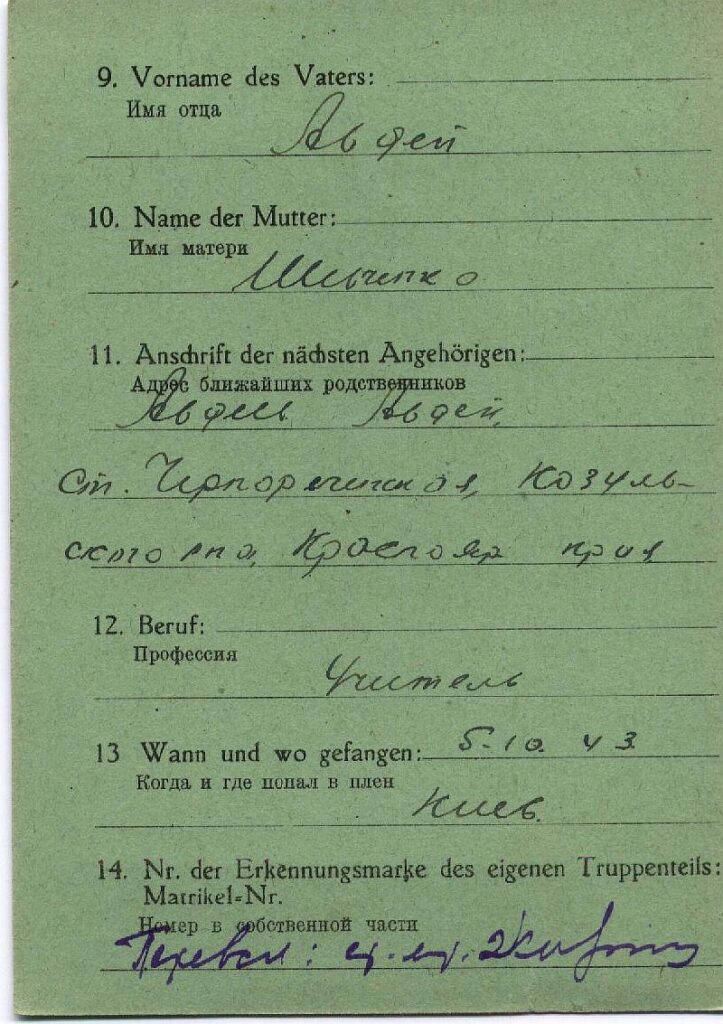 9. Vorname des Vaters:
Имя отца
Авдей
10. Name der Mutter:
Имя матери
11. Anschrift der nächsten Angehörigen:
Адрес ближайших родственников
Авдей
ст. Чернореченская, Козуль-
ского Краснояр края
12. Beruf:
Профессия
Учитель
13 Wann und wo gefangen: 5-10. 43
Когда и где попал в плен
Киев.
14. Nr. der Erkennungsmarke des eigenen Truppenteils:
Matrikel-Nr.
Номер в собственной части
Перевел: